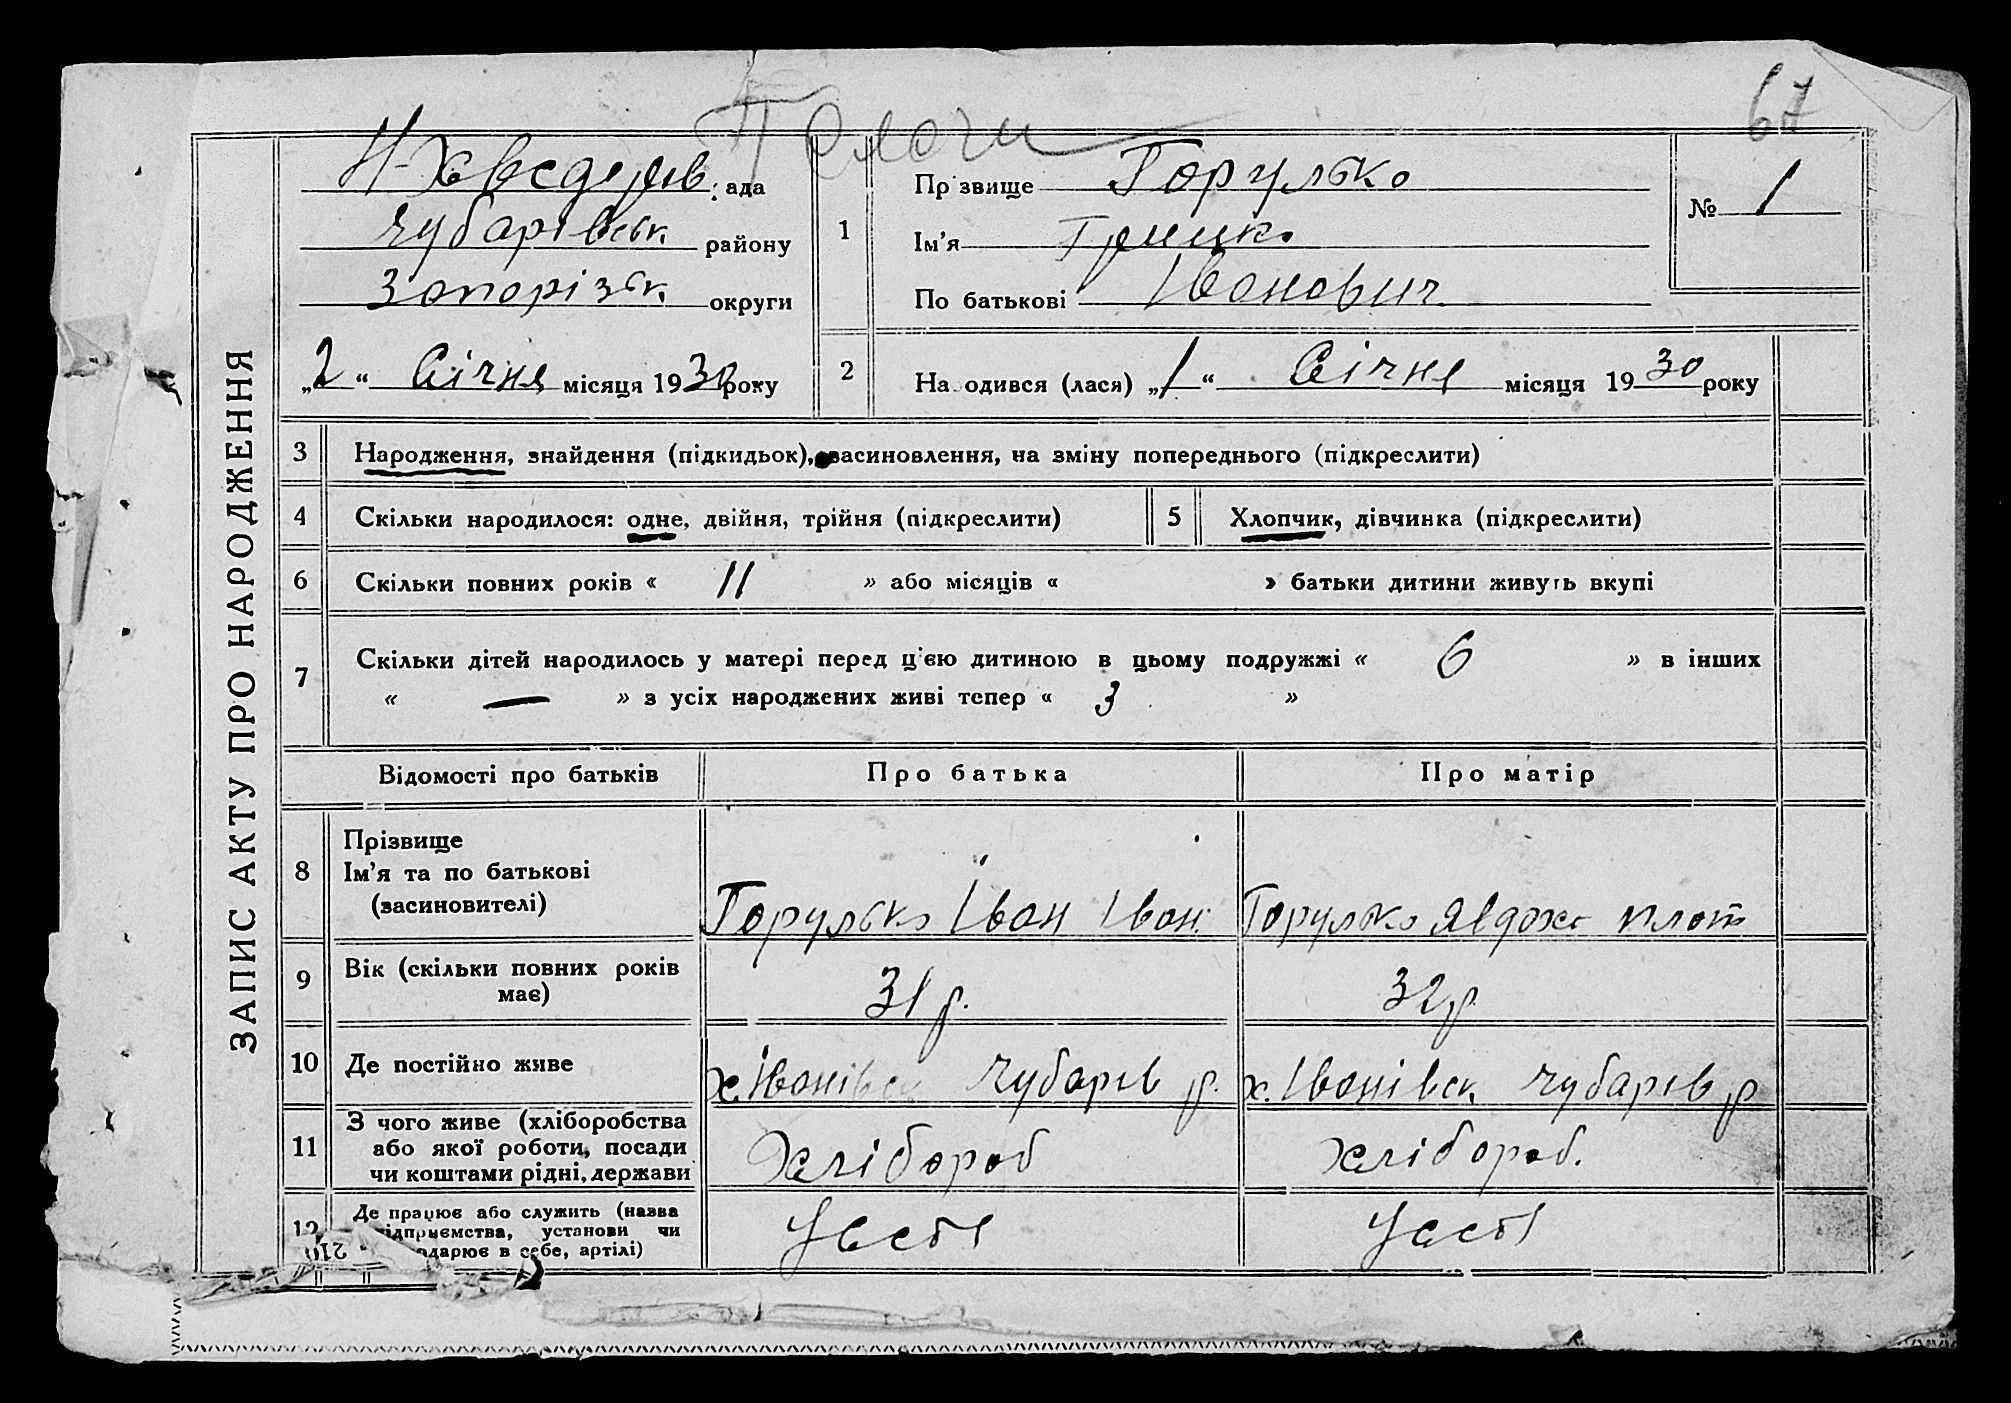 Пологи
67
ЗАПИС АКТУ ПРО НАРОДЖЕННЯ
Н-Хведорів ада
Чубарівськ району
Запорізьк округи
„2“ Січня місяця 1930 року
1
Пр звище Горулько
Ім’я Грицко
По батькові Іванович
№ 1
2
На одився (лася) „1“ Січня місяця 1930 року
3 Народження, знайдення (підкидьок), засиновлення, на зміну попереднього (підкреслити)
4 Скільки народилося: одне, двійня, трійня (підкреслити)
5 Хлопчик, дівчинка (підкреслити)
6 Скільки повних років « 11 » або місяців « » батьки дитини живуть вкупі
7 Скільки дітей народилось у матері перед цією дитиною в цьому подружжі « 6 » в інших
« — » з усіх народжених живі тепер « 3 »
Відомості про батьків Про батька Про матір
8 Прізвище
Ім’я та по батькові
(засиновителі)
Горулько Іван Іван. Горулько Явдоха Плат
9 Вік (скільки повних років
має)
31 р. 32 р
10 Де постійно живе х. Іванівск Чубарів р. х. Іванівск Чубарів р
11 З чого живе (хліборобства
або якої роботи, посади
чи коштами рідні, держави
Хлібороб Хлібороб.
12 Де працює або служить (назва
ідприємства, установи чи
одарює в себе, артілі)
У себе У себе
210